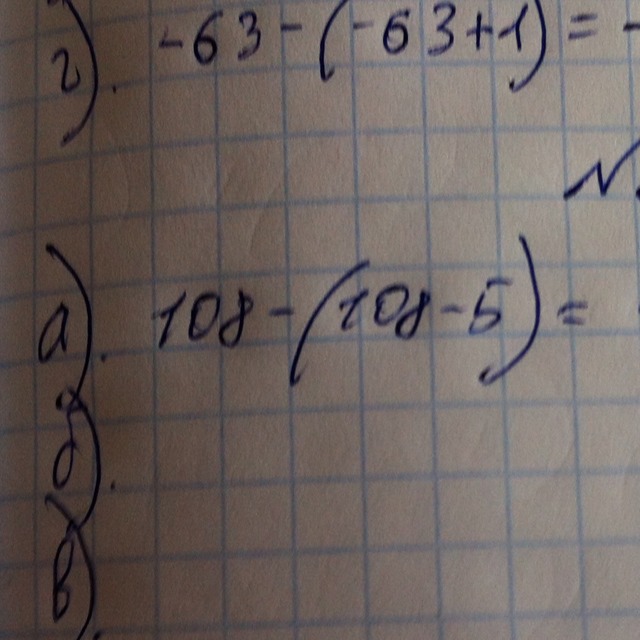 г). -63-(-63+1)=-
N
а). 108-(108-5)=
б).
в)